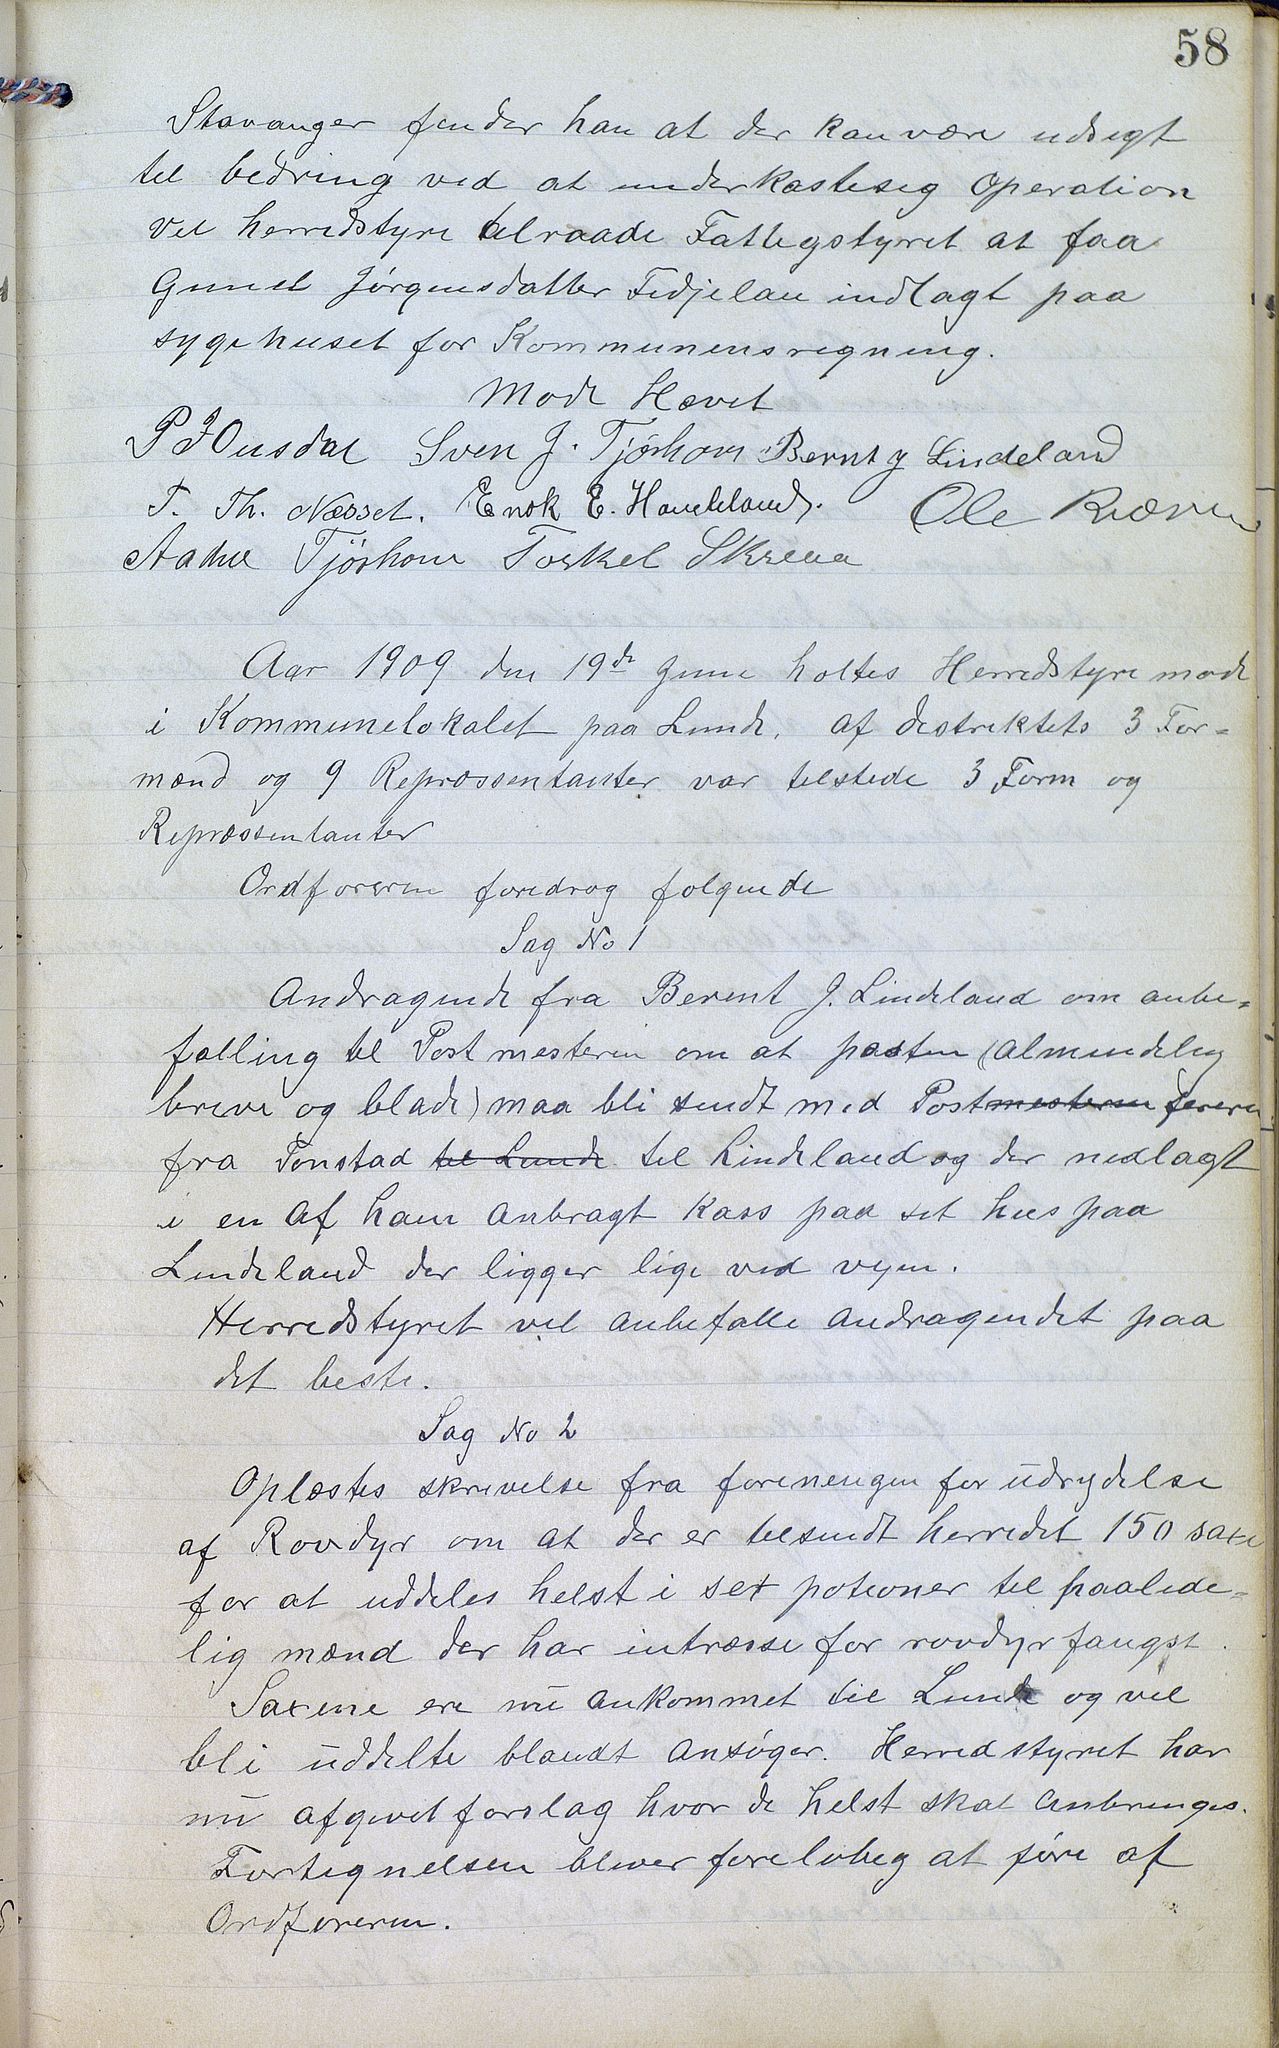 58
Stavanger finder han at der kan være udsigt
til bedring ved at underkastesig Operation
vil herredstyre tilraade Fattigstyret at faa
Gunil Jörgensdatter Fidjelan indlagt paa
sygehuset for Kommunensregning.
Møde Hævet
P J Ousdal Sven J. Tjörhom Bernt J Lindeland
T. Th. Næsset. Enok E. Haukeland. Ole Rveven
Aadne Tjörhom Torkel Skreaa
Aar 1909 den 19de June holtes Herredstyre møde
i Kommunelokalet paa Lunde. af destriktets 3 For-
mænd og 9 Repræssentanter var telstede 3 Form og
Repræssentanter
Ordføreren foredrog følgende
Sag No 1
Andragende fra Berent J. Lindeland om anbe-
falling til Postmesteren om at posten (almindelig
breve og blade) maa bli sendt med Postmesteren føreren
fra Tonstad til Lunde til Lindeland og der nedlagt
i en af ham anbragt Kass paa sit hus paa
Lindeland der ligger lige ved vejen.
Herredstyret vil anbefalle andragendet paa
det beste.
Sag No 2
Oplæstes skrivelse fra foreningen for udrydelse
af Rovdyr om at der er telsendt herredet 150 saxe
for at uddeles helst i sex potioner til paalide-
lig mænd der har intræsse for rovdyrfangst.
Saxene ere nu ankommet til Lunde og vil
bli uddelte blandt ansøger. Herredstyret har
nu afgivet forslag hvor de helst skal anbringes.
Fortegnelsen bliver foreløbeg at føre af
Ordføreren.